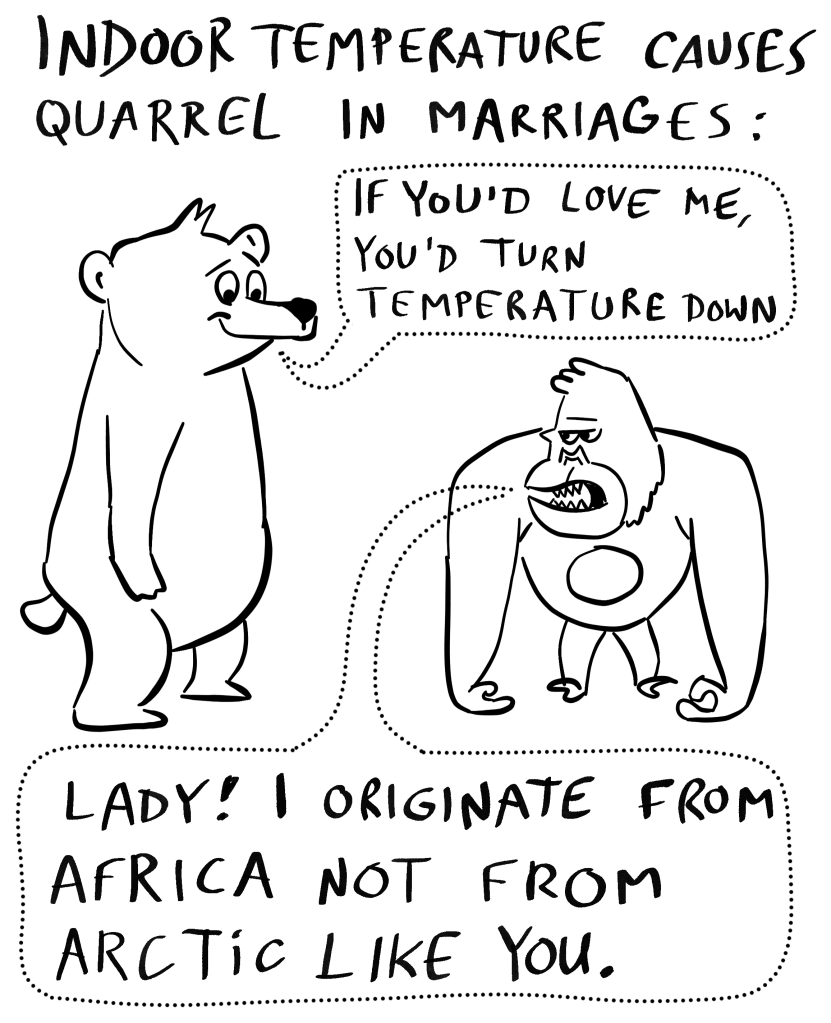 INDOOR TEMPERATURE CAUSES
QUARREL IN MARRIAGES:
IF YOU'D LOVE ME,
YOU'D TURN
TEMPERATURE DOWN
LADY! I ORIGINATE FROM
AFRICA NOT FROM
ARCTiC LIKE YOU.